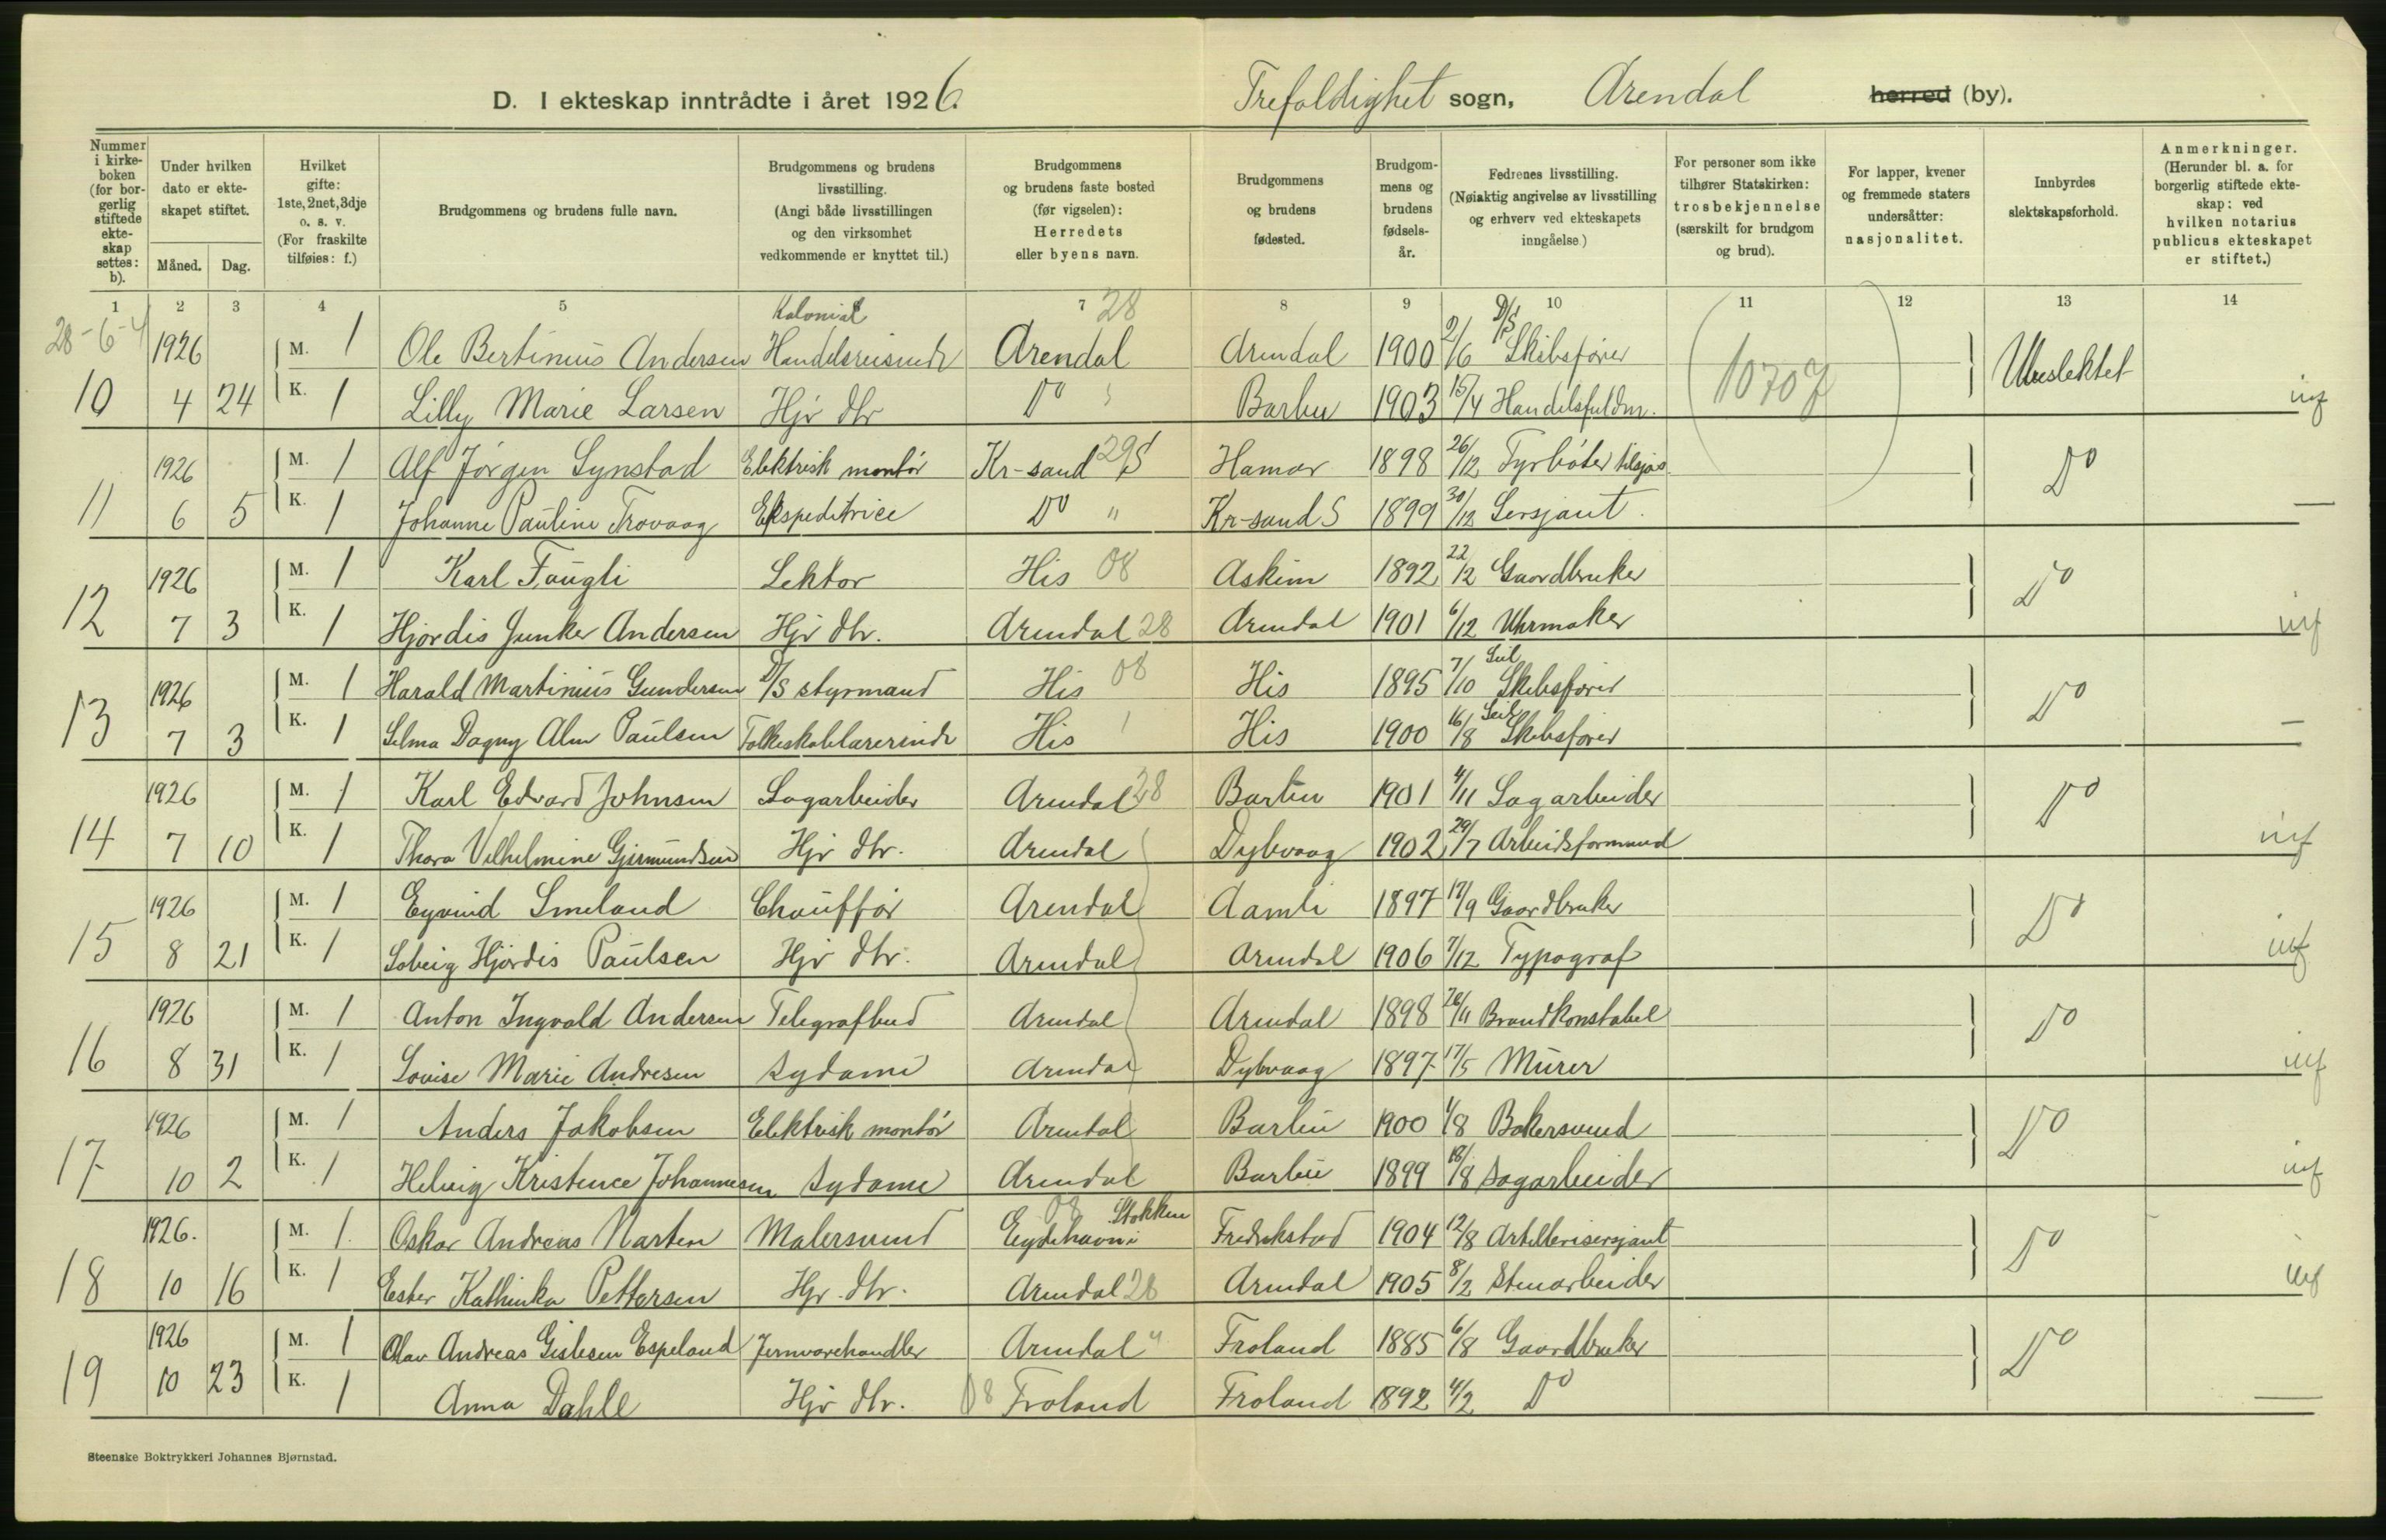 D. I ekteskap inntrådte i året 1926. Trefoldighet sogn, Arendal herred (by).
Nummer i kirke-boken (for bor-gerlig stiftede ekte-skap settes: b).
Under hvilken dato er ekte-skapet stiftet.
Måned. Dag.
Hvilket gifte: 1ste, 2net, 3dje o. s. v. (For fraskilte tilføies: f.)
Brudgommens og brudens fulle navn.
Brudgommens og brudens livsstilling. (Angi både livsstillingen og den virksomhet vedkommende er knyttet til.)
Brudgommens og brudens faste bosted (før vigselen): Herredets eller byens navn.
Brudgommens og brudens fødested.
Brudgom-mens og brudens fødsels-år.
Fedrenes livsstilling. (Nøiaktig angivelse av livsstilling og erhverv ved ekteskapets inngåelse.)
For personer som ikke tilhører Statskirken: trosbekjennelse (særskilt for brudgom og brud).
For lapper, kvener og fremmede staters undersåtter: nasjonalitet.
Innbyrdes slektskapsforhold.
Anmerkninger. (Herunder bl. a. for borgerlig stiftede ekte-skap: ved hvilken notarius publicus ekteskapet er stiftet.)
1 2 3 4 5 6 7 8 9 10 11 12 13 14
28-6-4 28 10707
1926 M. 1 Ole Bertinius Andersen Kolonial Handelsreisende Arendal Arendal 1900 2/6 D/S Skibsfører Ubeslektet
10 4 24 K. 1 Lilly Marie Larsen Hjv dtr Do Barbu 1903 15/4 Handelsfuldm.
1926 M. 1 Alf Jørgen Lynstad Elektrisk montør Kr-sand S 29 Hamar 1898 26/12 Fyrbøter tilsjøs Do
11 6 5 K. 1 Johanne Pauline Trovaag Ekspeditrice Do " Kr-sand S 1899 30/12 Sersjant.
1926 M. 1 Karl Faugli Lektor His 08 Askim 1892 22/12 Gaardbruker Do
12 7 3 K. 1 Hjørdis Junker Andersen Hjv dtr. Arendal 28 Arendal 1901 6/12 Uhrmaker
1926 M. 1 Harald Martinius Gundersen D/S styrmand His 08 His 1895 7/10 Seil Skibsfører Do
13 7 3 K. 1 Selma Dagny Alm Paulsen Folkeskolelærerinde His His 1900 16/8 Seil Skibsfører
1926 M. 1 Karl Edvard Johnsen Sagarbeider Arendal 28 Barbu 1901 4/11 Sagarbeider Do
14 7 10 K. 1 Thora Vilhelmine Gjermundsen Hjv dtr. Arendal Dybvaag 1902 29/7 Arbeidsformand
1926 M. 1 Eyvind Smeland Chauffør Arendal Aamli 1897 17/9 Gaardbruker Do
15 8 21 K. 1 Solveig Hjørdis Paulsen Hjv dtr. Arendal Arendal 1906 7/12 Typograf
1926 M. 1 Anton Ingvald Andersen Telegrafbud Arendal Arendal 1898 26/11 Brandkonstabel Do
16 8 31 K. 1 Lovise Marie Andresen Sydame Arendal Dybvaag 1897 17/5 Murer
1926 M. 1 Anders Jakobsen Elektrisk montør Arendal Barbu 1900 1/8 Bakersvend Do
17 10 2 K. 1 Helvig Kristence Johannesen Sydame Arendal Barbu 1899 18/8 Sagarbeider
1926. M. 1 Oskar Andreas Marten Malersvend Eydehavn i Stokken 08 Fredrikstad 1904 12/8 Artillerisersjant Do
18 10 16 K. 1 Ester Kathinka Pettersen Hjv. dtr. Arendal 28 Arendal 1905 8/2 Stenarbeider
1926 M. 1 Olav Andreas Gislesen Espeland Jernvarehandler Arendal " Froland 1885 6/8 Gaardbruker Do
19 10 23 K. 1 Anna Dahle Hjv dtr. 08 Froland Froland 1892 4/2 Do
Steenske Boktrykkeri Johannes Bjørnstad.